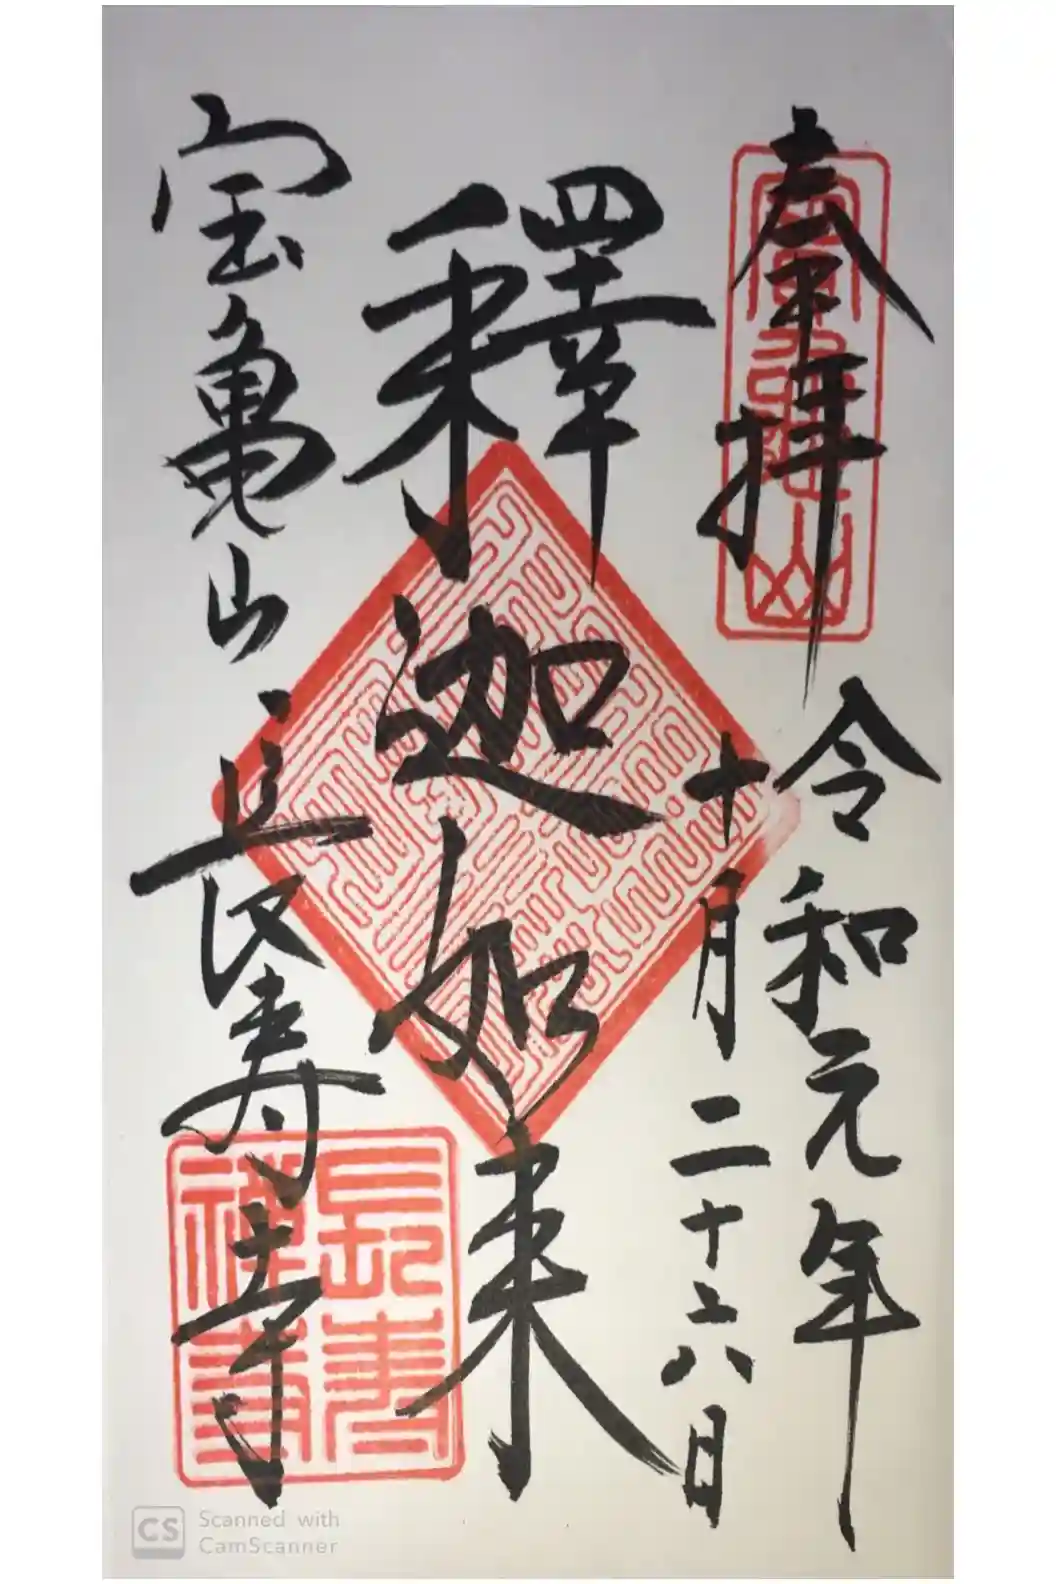 奉拝
令和元年
十月二十六日
釋迦如来
宝亀山
長寿寺
寶亀山
長壽
禅寺
CS Scanned with
CamScanner